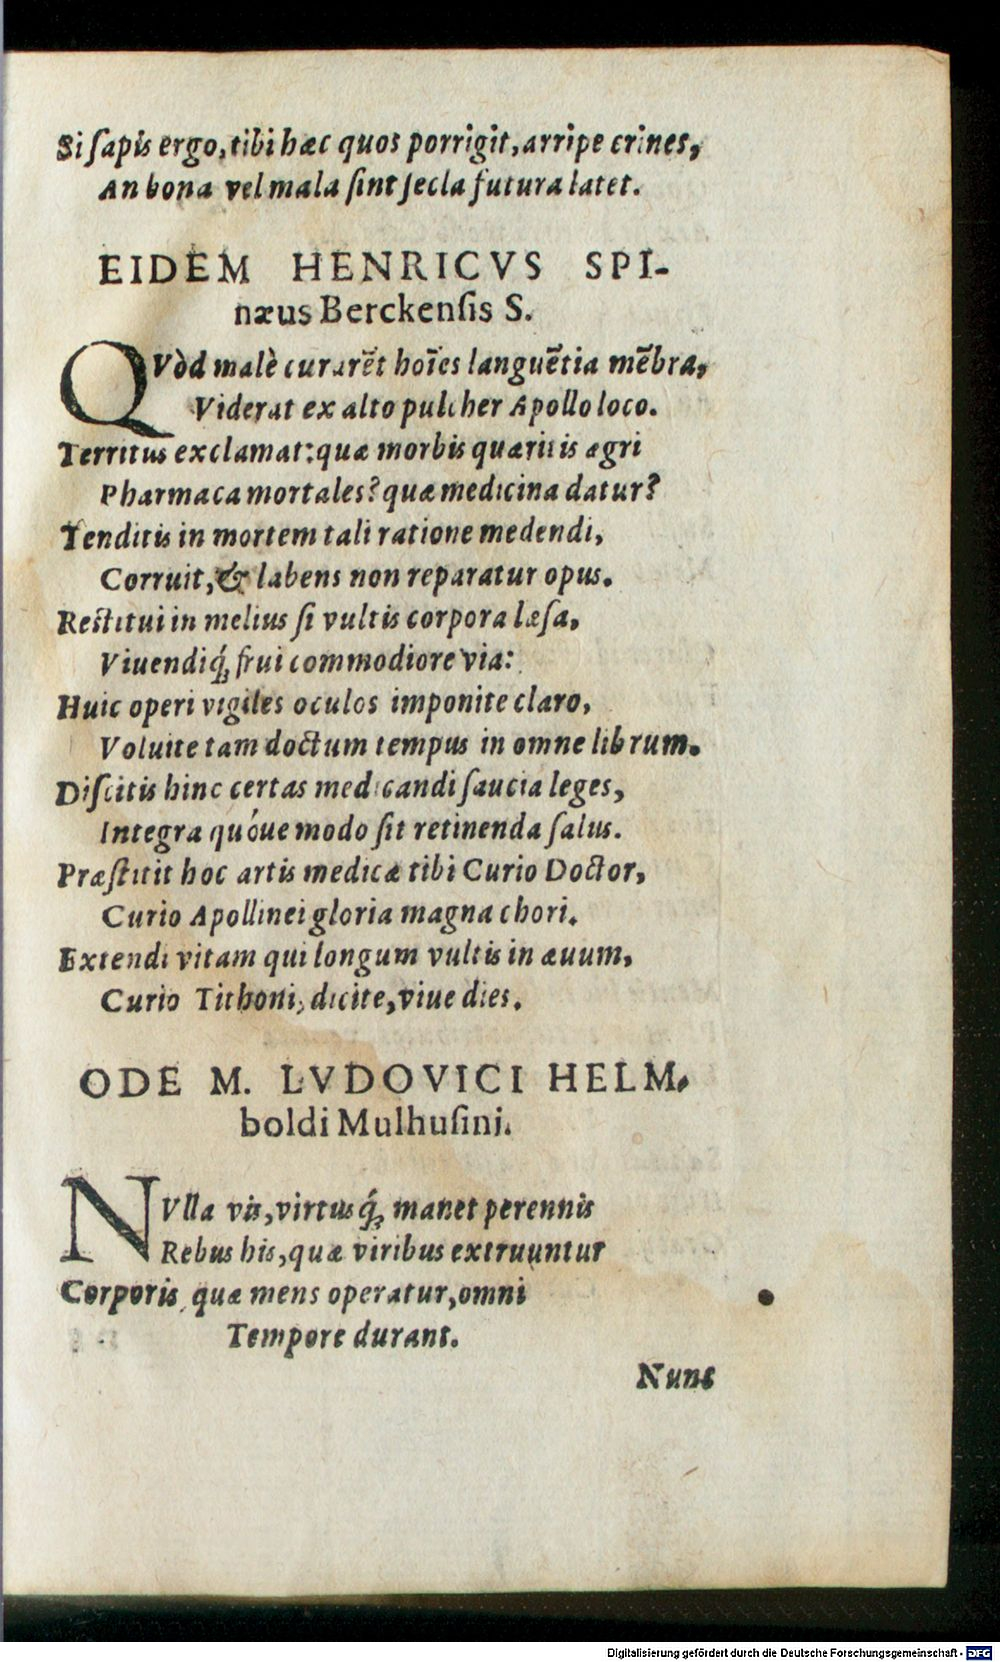 Si ſapis ergo, tibi hæc quos porrigit, arripe crines,
An bona vel mala ſint ſecla futura latet.
EIDEM HENRICVS SPI-
næus Berckenſis S.
QVòd malè curarēt hoīes languētia mēbra,
Viderat ex alto pulcher Apollo loco.
Territus exclamat: quæ morbis quæritis ægri
Pharmaca mortales? quæ medicina datur?
Tenditis in mortem tali ratione medendi,
Corruit, & labens non reparatur opus.
Reſtitui in melius ſi vultis corpora læſa,
Viuendiq́; frui commodiore via:
Huic operi vigiles oculos imponite claro,
Voluite tam doctum tempus in omne librum.
Diſcitis hinc certas medicandi ſaucia leges,
Integra quóue modo ſit retinenda ſalus.
Præſtitit hoc artis medicæ tibi Curio Doctor,
Curio Apollinei gloria magna chori.
Extendi vitam qui longum vultis in æuum,
Curio Tithoni, dicite, viue dies.
ODE M. LVDOVICI HELM-
boldi Mulhuſini.
NVlla vis, virtusq́; manet perennis
Rebus his, quæ viribus extruuntur
Corporis, quæ mens operatur, omni
Tempore durant.
Nunc
Digitalisierung gefördert durch die Deutsche Forschungsgemeinschaft - DFG